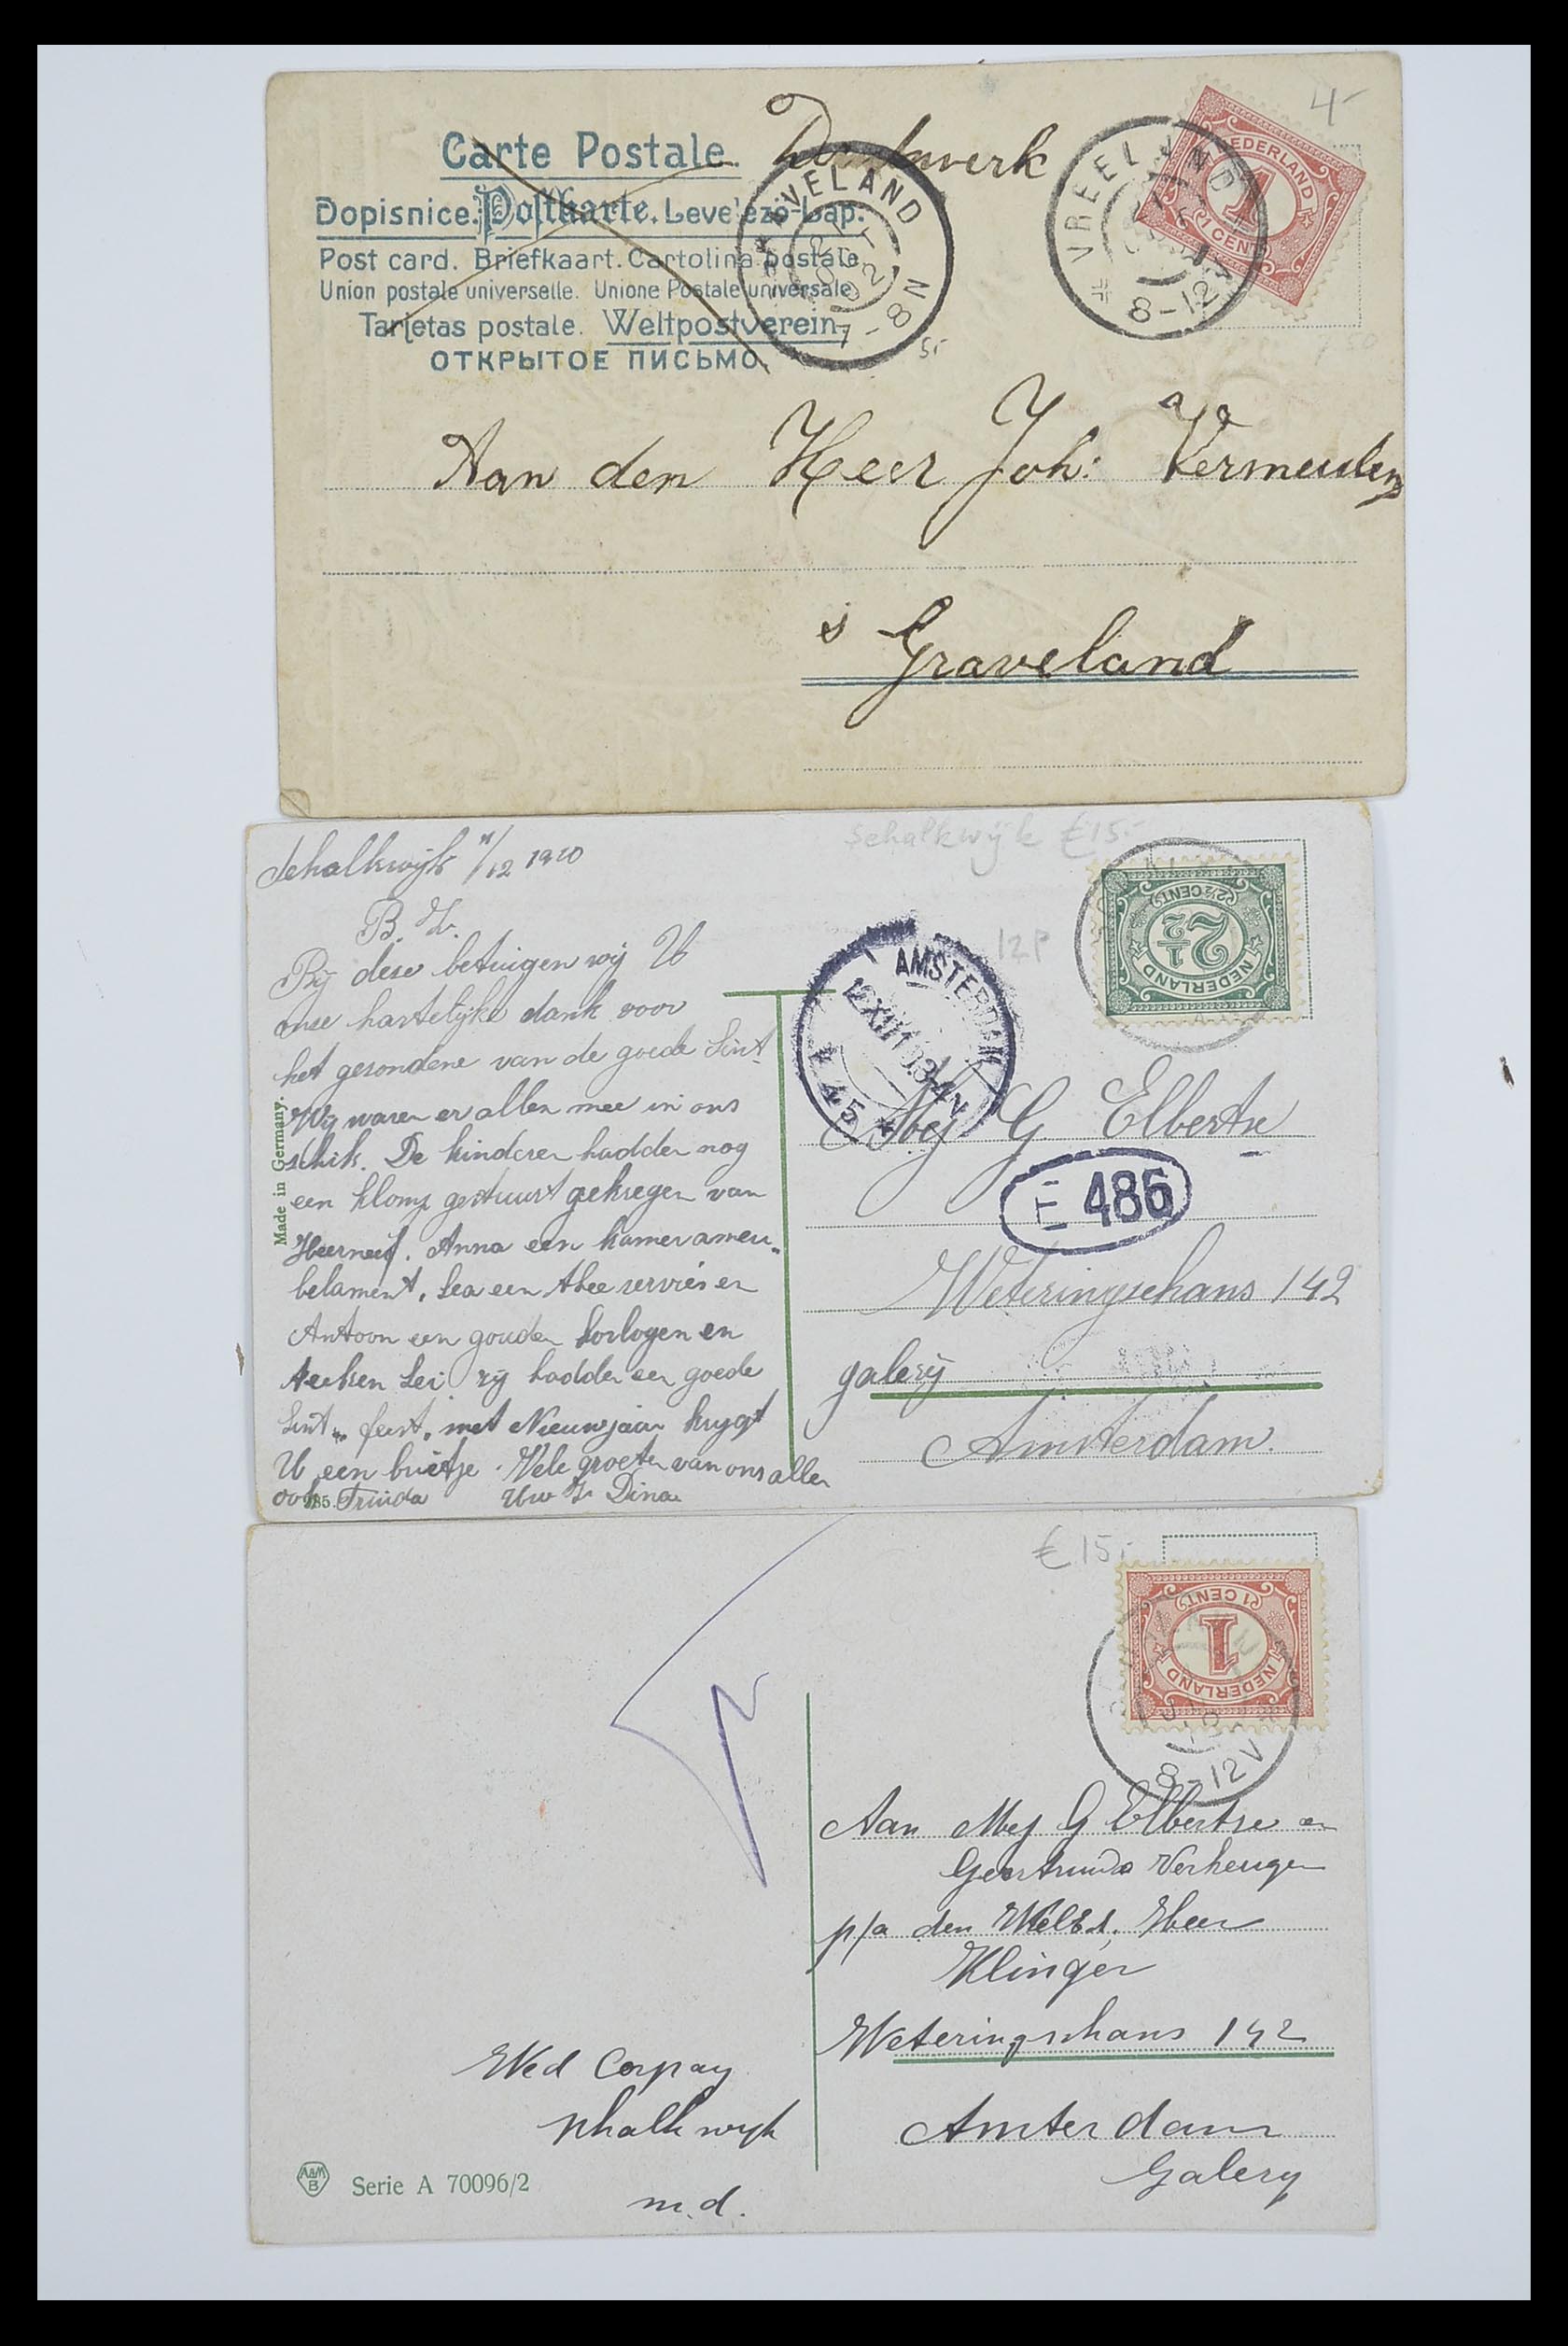 Carte Postale. Drukwerk
Dopisnice. Postkarte. Levelező-Lap.
Post card. Briefkaart. Cartolina postale
Union postale universelle. Unione Postale universale
Tarjetas postale. Weltpostverein.
ОТКРЫТОЕ ПИСЬМО.
VELAND
7-8 N
VREELAND
8-12V
NEDERLAND
1
1 CENT
4-
5-
7 50
Aan den Heer Joh: Vermeulen
s Graveland
Schalkwijk €15.-
12P
Schalkwijk 11/12 1910
B. Z.
Bij deze betuigen wij U
onze hartelijke dank voor
het gezondene van de goede Sint
Wij waren er allen mee in ons
schik. De kinderen hadden nog
een klomp gestuurt gekregen van
Heerneef. Anna een kamerameu„
belament, Lea een thee servies en
Antoon een gouden horlogen en
zij hadden een goede
Sint„ feest, met Nieuwjaar krygt
U een briefje. Vele groeten van ons allen
ook Truida Uw Dina
Made in Germany.
985.
2½ CENT
2½
NEDERLAND
AMSTERDAM
12 XII 10 3-4N
45
Mej G Elbertse
E 486
Weteringschans 142
galerij
Amsterdam.
€15,-
1 CENT
1
NEDERLAND
8-12V
Aan Mej G Elbertse en
Geertruida Verheugen
p/a den WelEd. Heer
Klinger
Weteringschans 142
Amsterdam
Galery
Wed Corpay
schalkwyk
m.d.
A&M
B
Serie A 70096/2